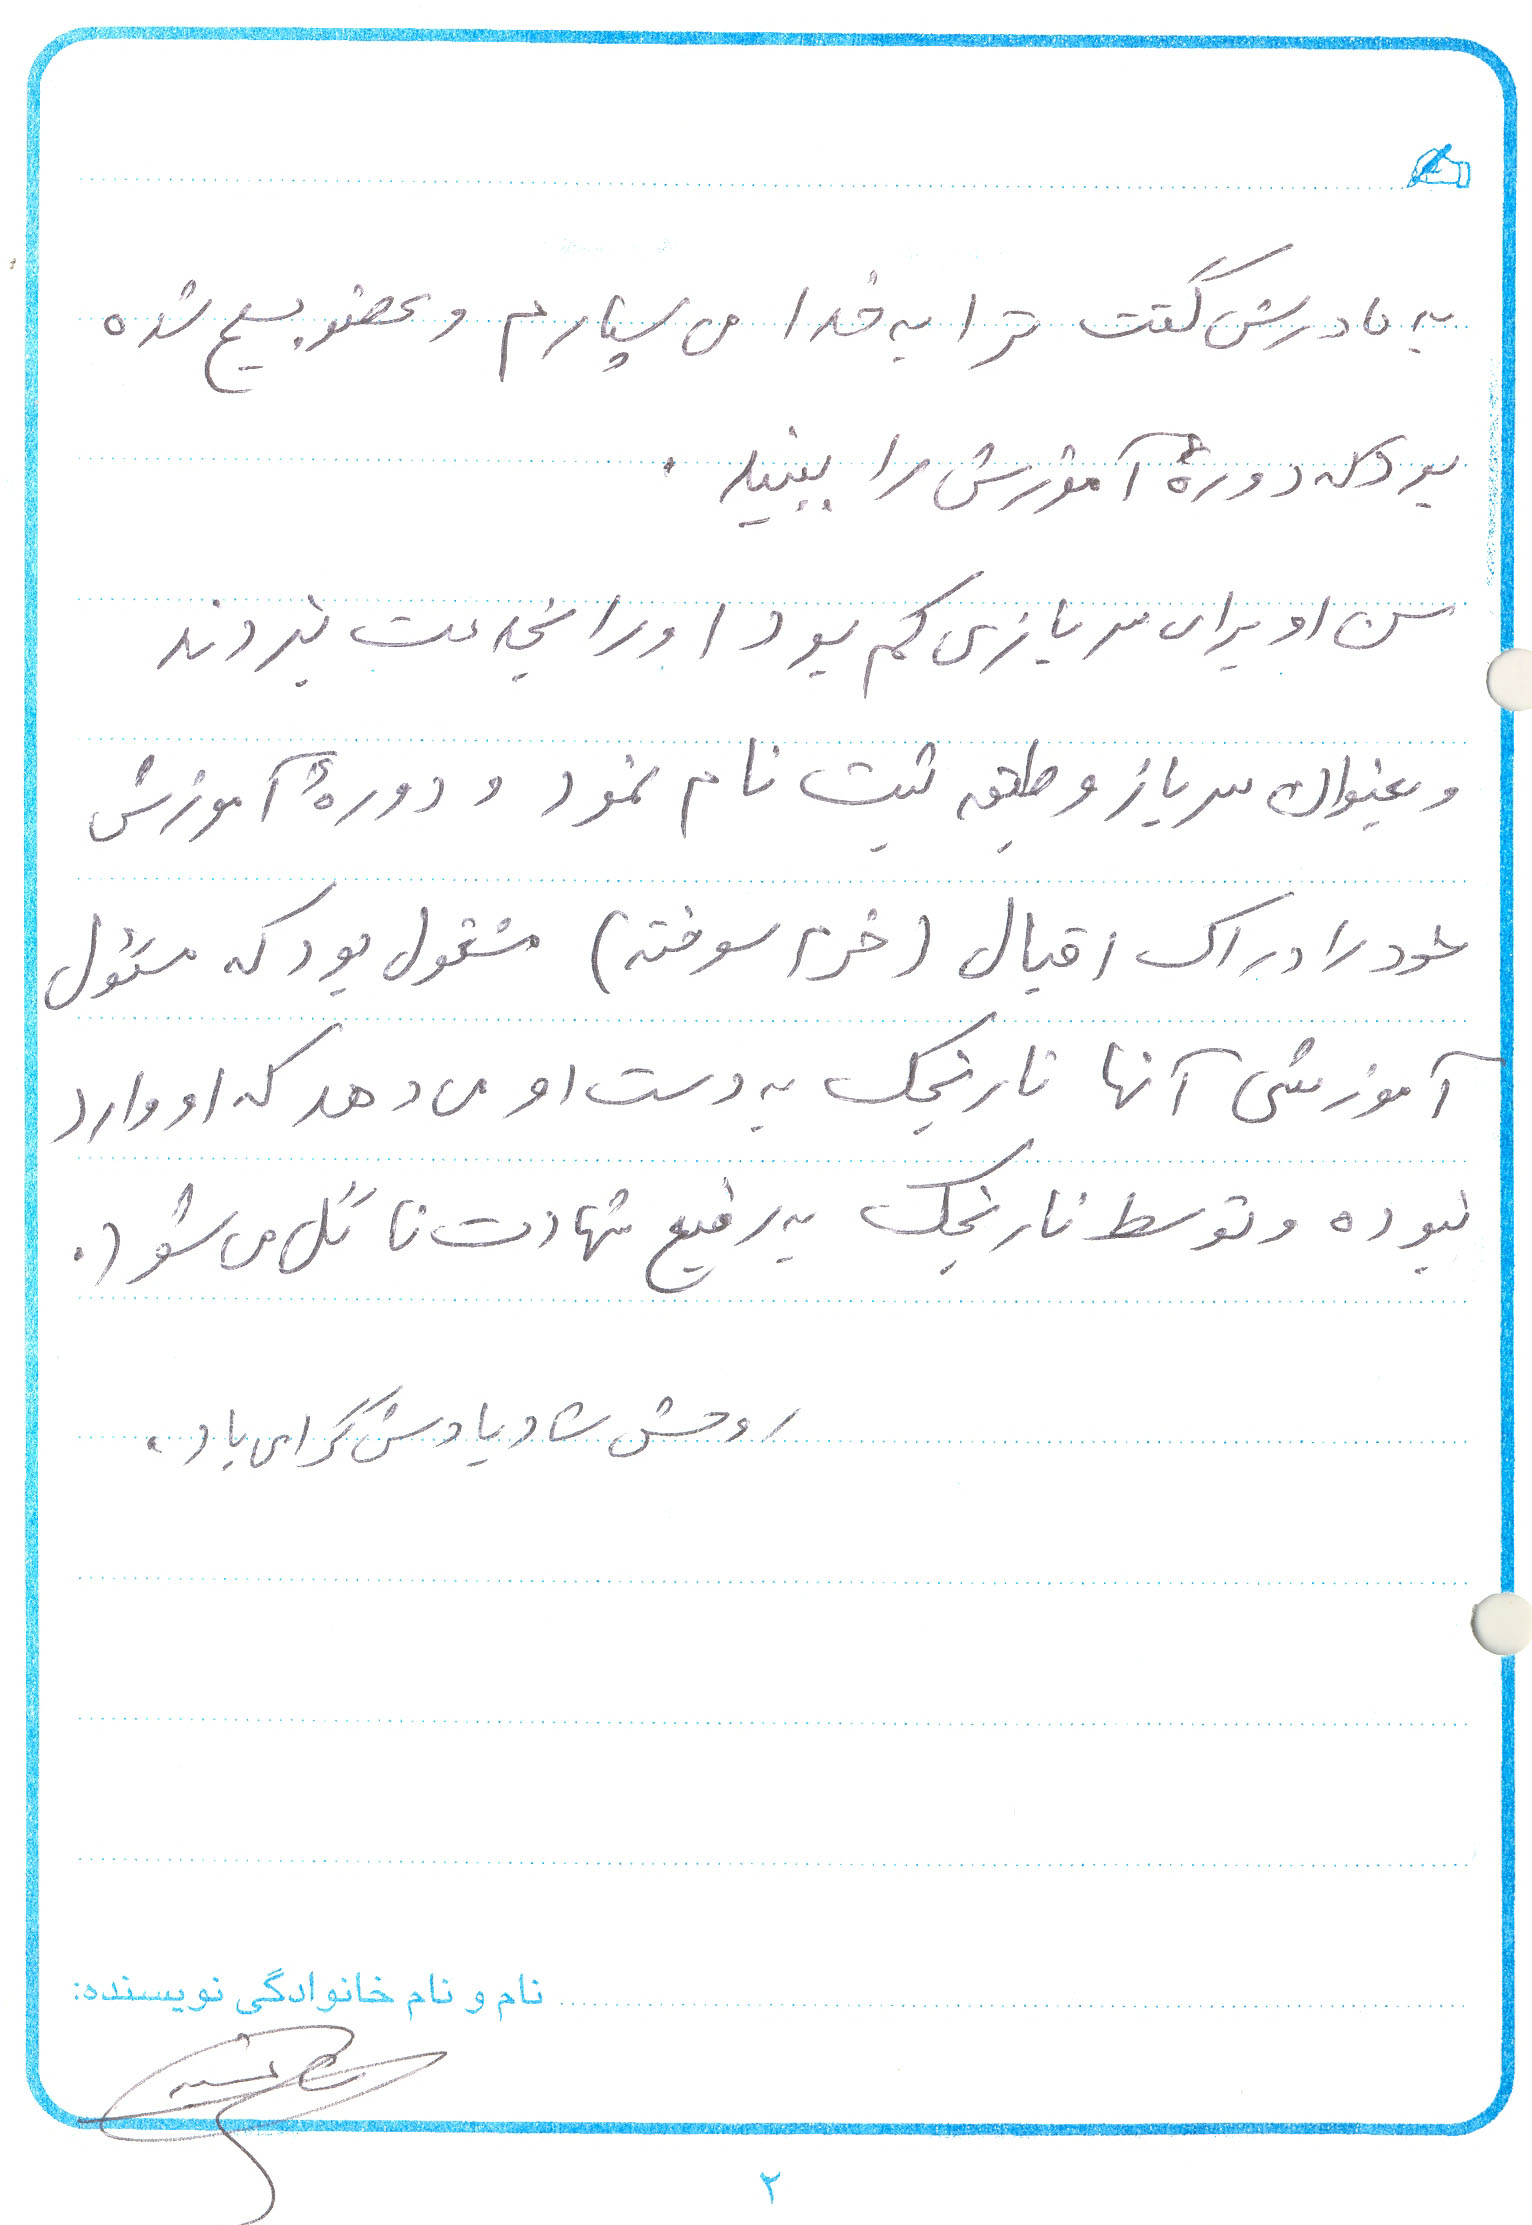 به مادرش گفت ترا به خدا می سپارم و عضو بسیج شده
بود که دورهٔ آموزش را ببیند .
سن او برای سربازی کم بود او را بخدمت نبردند
و بعنوان سرباز وظیفه ثبت نام نمود و دورهٔ آموزش
خود را در اراک اقبال (خرم سوخته) مشغول بود که مسئول
آموزشی آنها نارنجک به دست او می دهد که او وارد
نبوده و توسط نارنجک به رفیع شهادت نائل می شود.
روحش شاد یادش گرامی باد .
نام و نام خانوادگی نویسنده:
۲